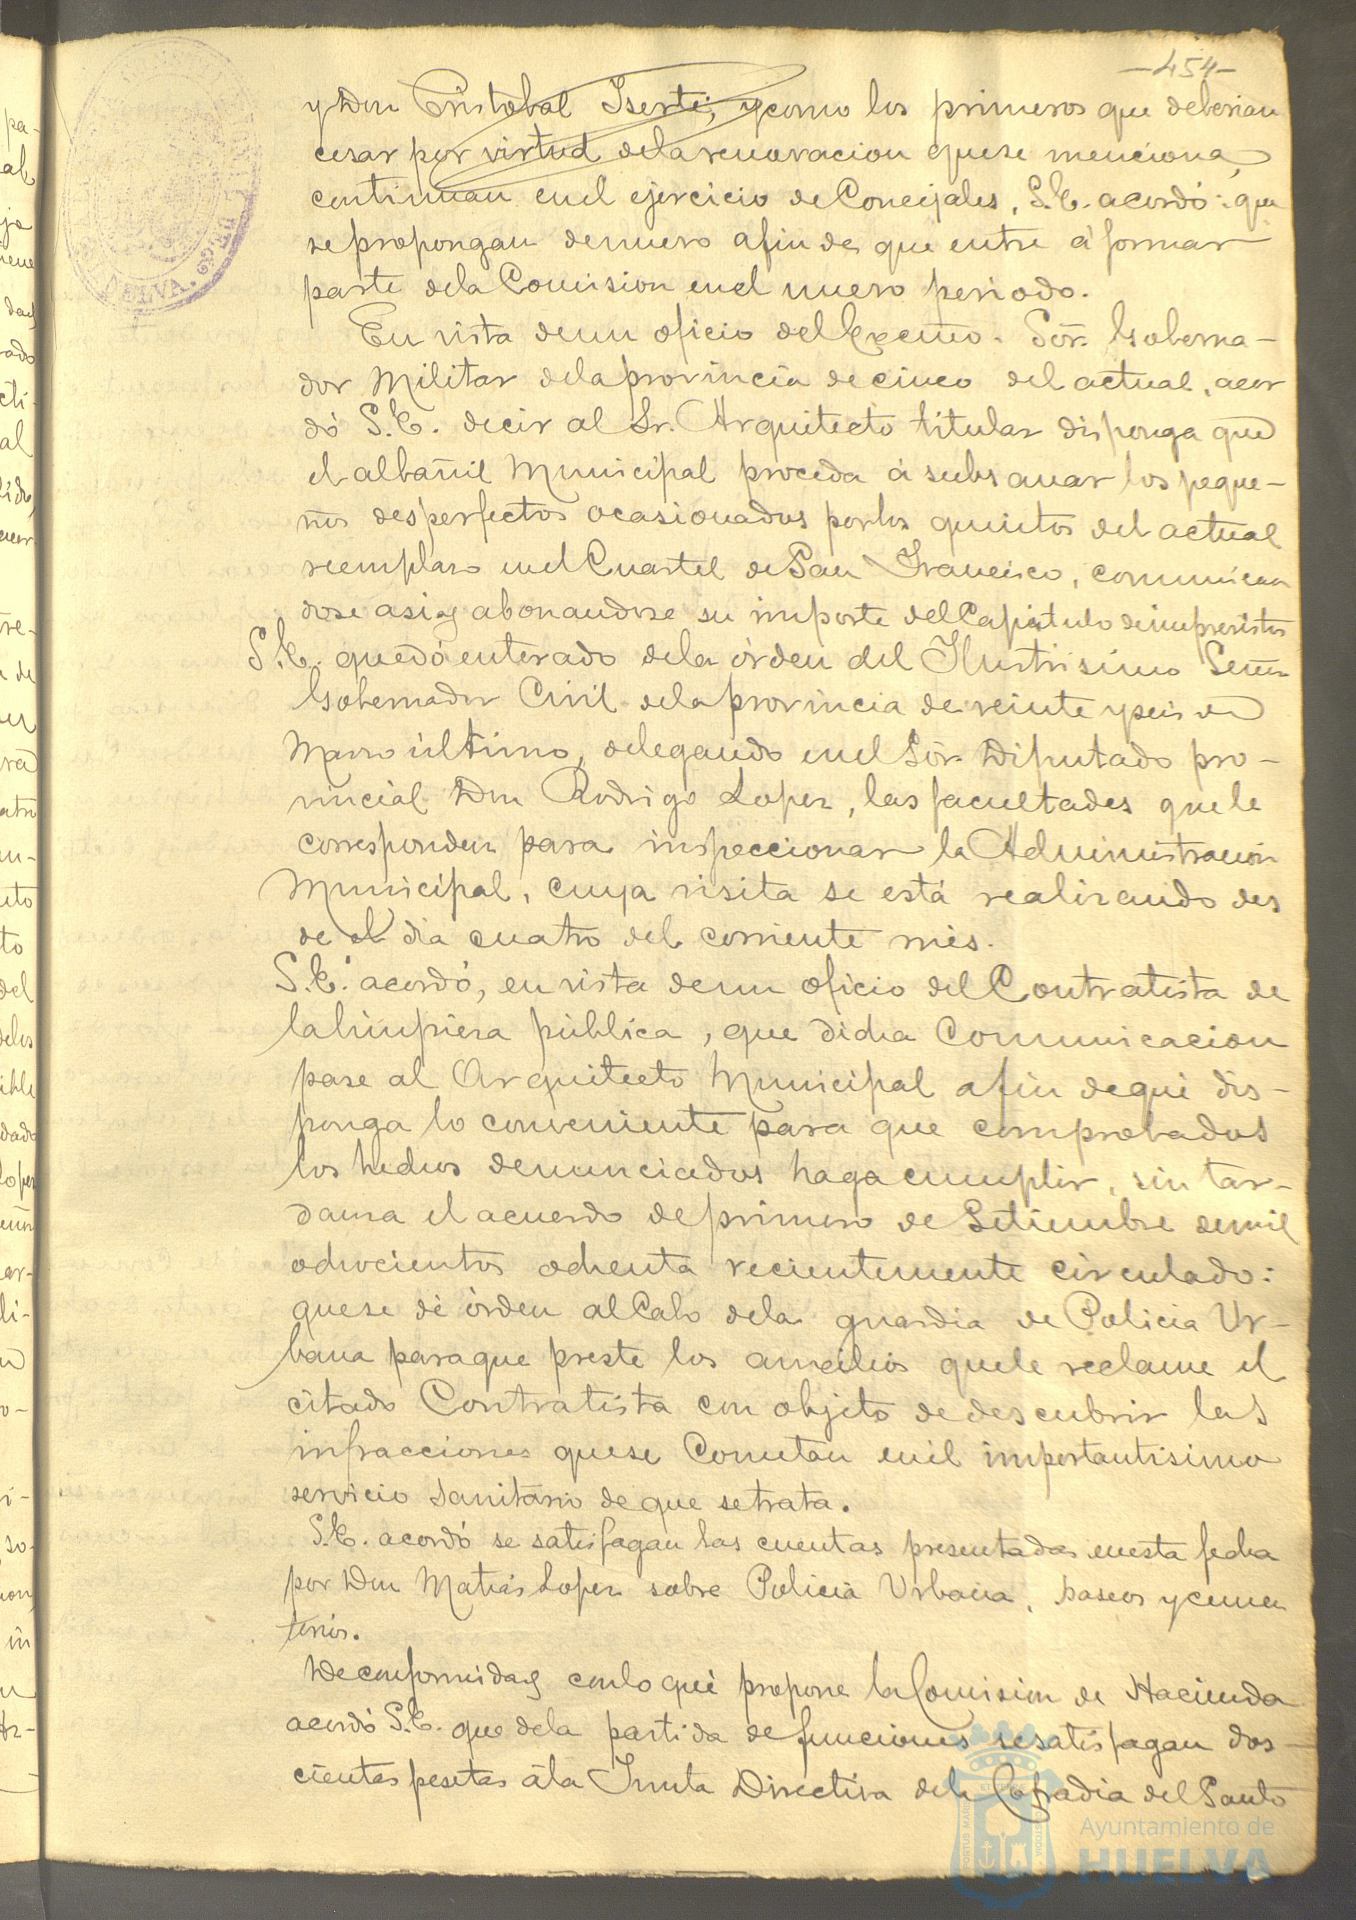 -454-
y Don Cristobal Iserte, y como los primeros que deberian
cesar por virtud de la renovacion que se menciona,
continuan en el ejercicio de Concejales, S.E. acordó: que
se propongan de nuevo a fin de que entre á formar
parte de la Comision en el nuevo periodo.
En vista de un oficio del Excmo. Sõr. Goberna-
dor Militar de la provincia de cinco del actual, acor
dó S.E. decir al Sr. Arquitecto titular disponga que
el albañil Municipal proceda á subsanar los peque-
ños desperfectos ocasionados por los quintos del actual
reemplazo en el Cuartel de San Francisco, comunican
dose asi y abonandose su importe del Capitulo de imprevistos
S.E. quedó enterado de la órden del Ilustrisimo Señor
Gobernador Civil de la provincia de veinte y seis de
Marzo último, delegando en el Sõr. Diputado pro-
vincial Don Rodrigo Lopez, las facultades que le
corresponden para inspeccionar la Administracion
Municipal, cuya visita se está realizando des
de el dia cuatro del corriente mes.
S.E. acordó, en vista de un oficio del Contratista de
la limpieza pública, que dicha Comunicacion
pase al Arquitecto Municipal a fin de que dis-
ponga lo conveniente para que comprobados
los hechos denunciados haga cumplir, sin tar-
danza el acuerdo de primero de Setiembre de mil
ochocientos ochenta recientemente circulado:
que se dé órden al Cabo de la guardia de Policia Ur-
bana para que preste los auxilios que le reclame el
citado Contratista con objeto de descubrir las
infracciones que se Cometan en el importantisimo
servicio Sanitario de que se trata.
S.E. acordó se satisfagan las cuentas presentadas en esta fecha
por Don Matias Lopez sobre Policia Urbana, paseos y cemen
terios.
De conformidad con lo que propone la Comision de Hacienda
acordó S.E. que de la partida de funciones se satisfagan dos-
cientas pesetas á la Junta Directiva de la Cofradia del Santo
Ayuntamiento de
HUELVA